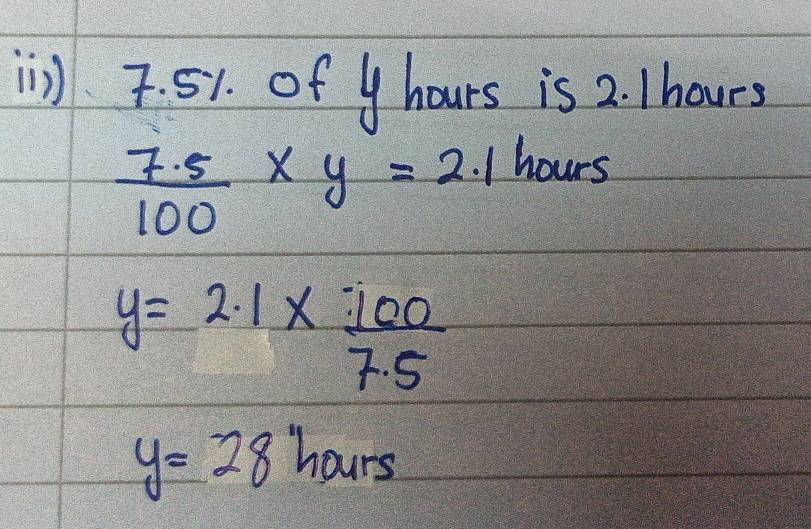 ii) 7.5% of y hours is 2.1 hours
7.5/100 × y = 2.1 hours
y = 2.1 × 100/7.5
y = 28 hours